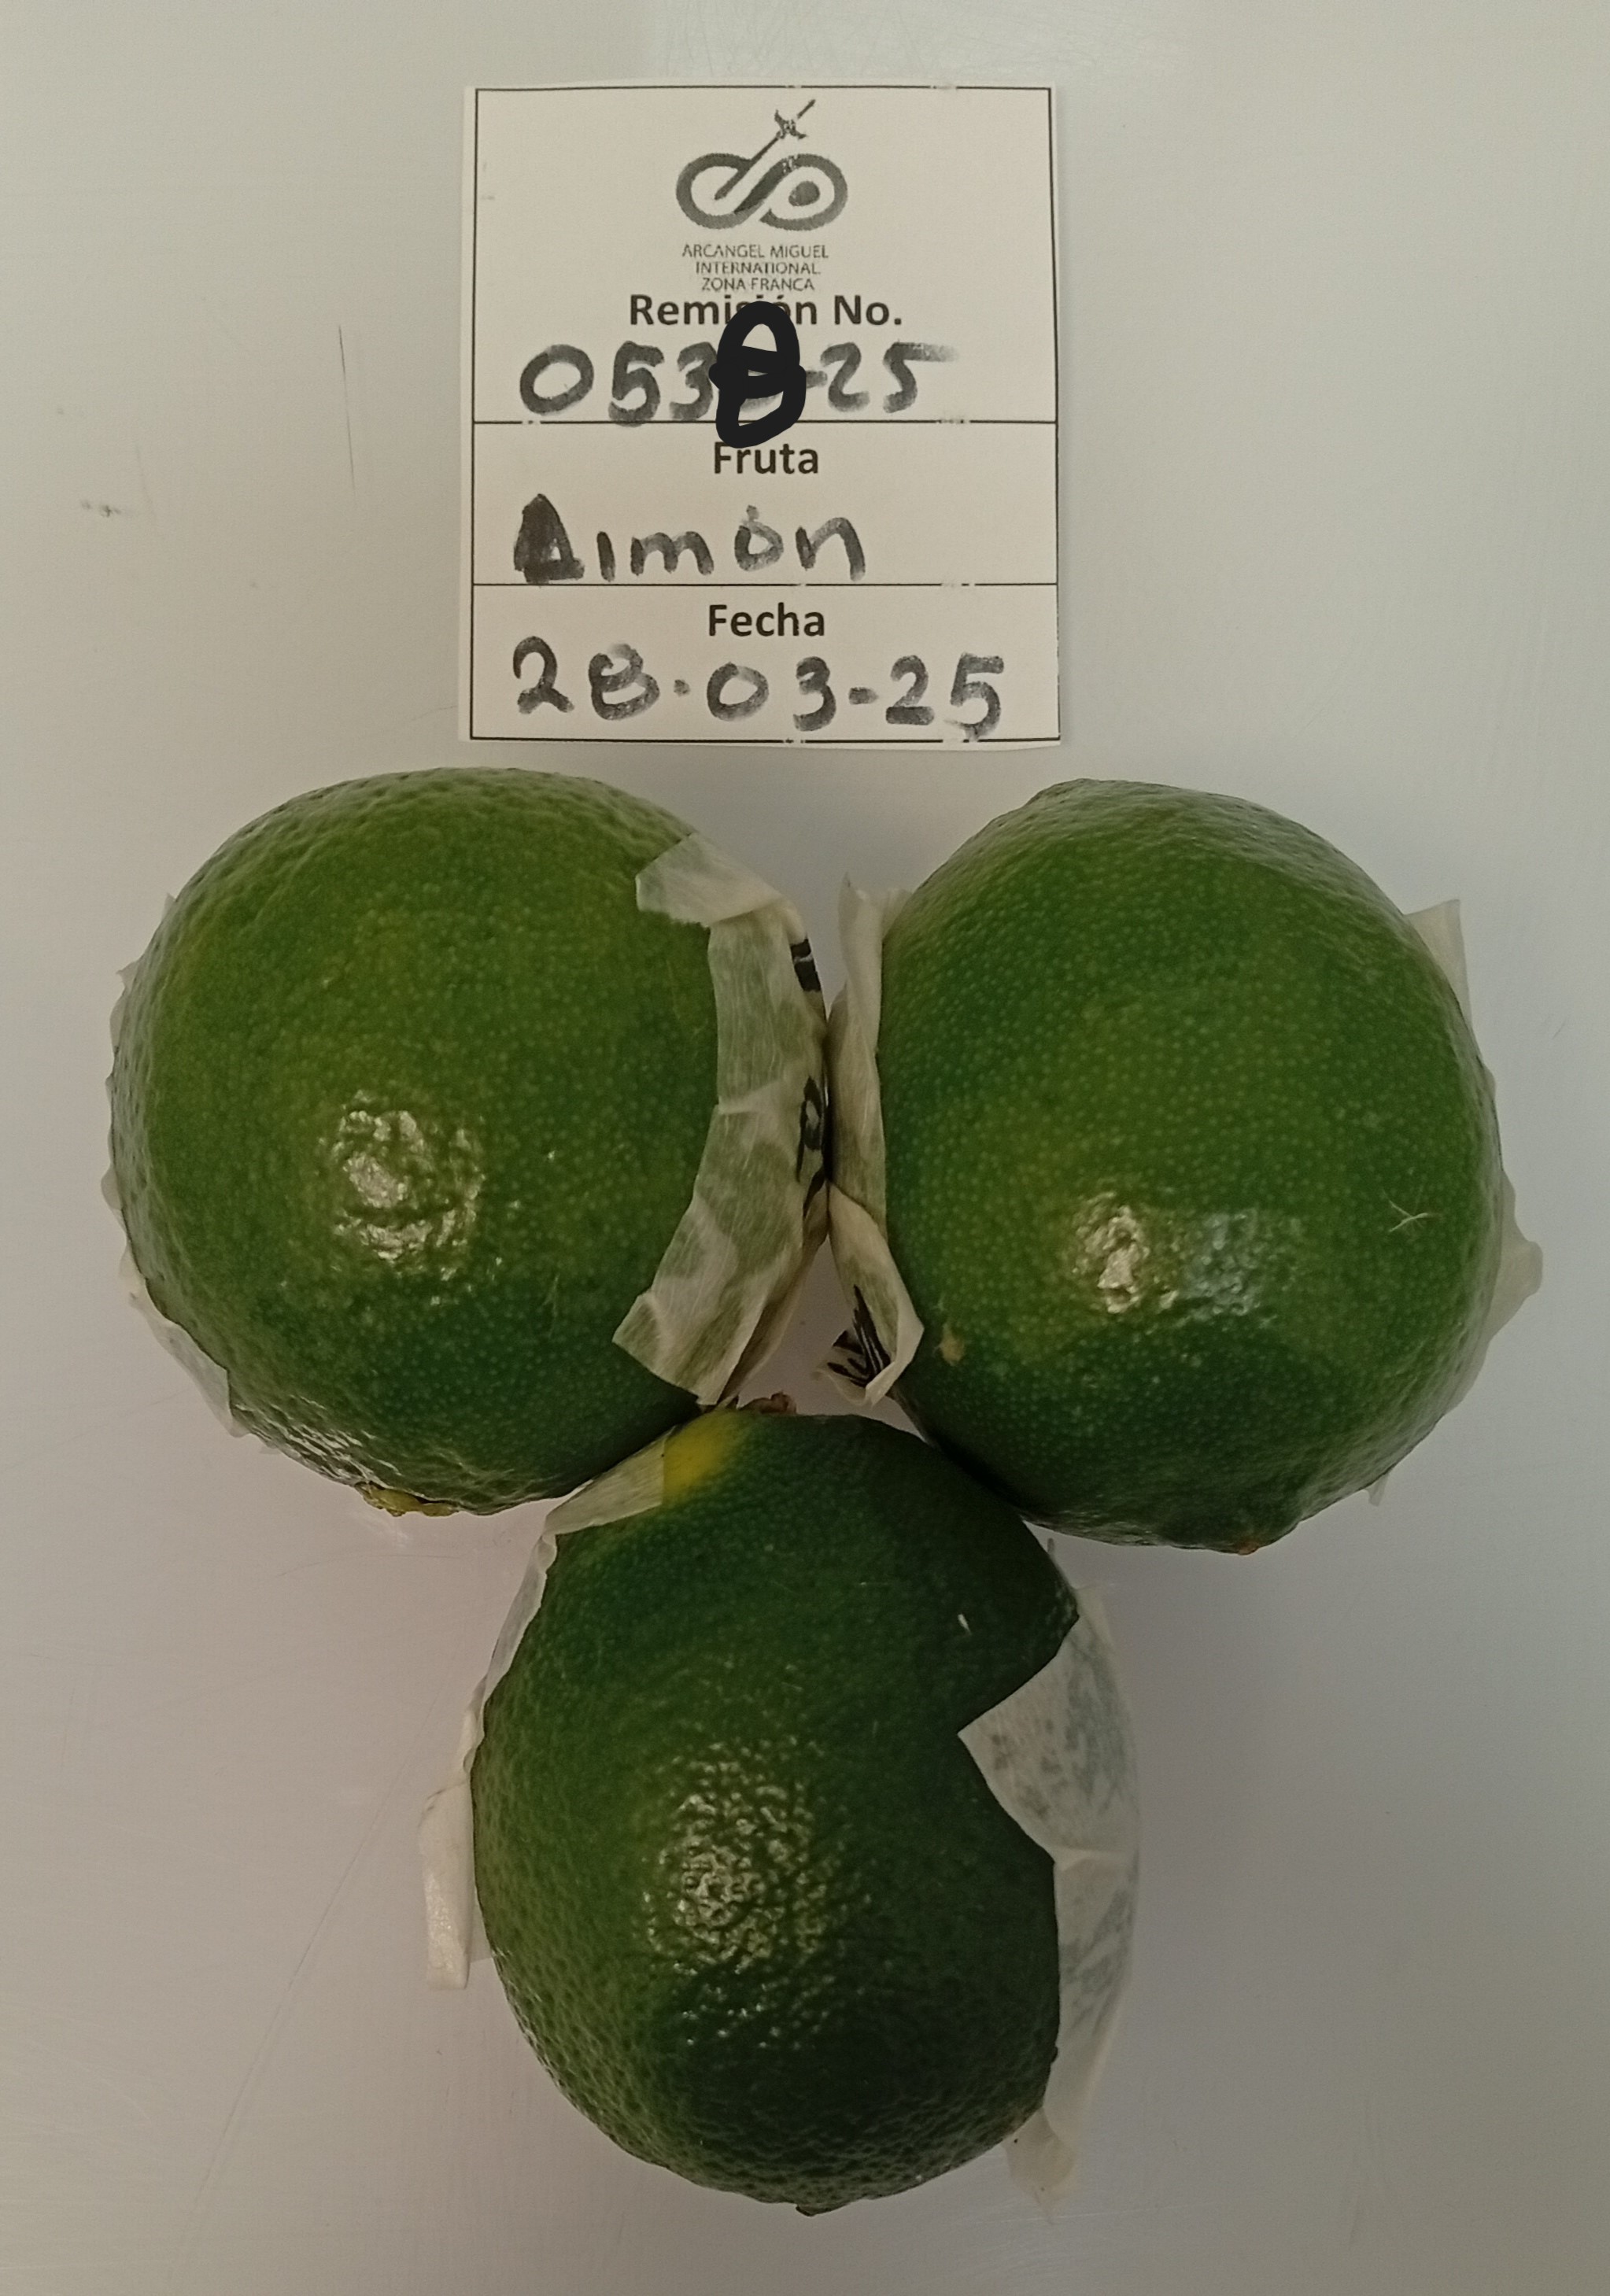 ARCANGEL MIGUEL
INTERNATIONAL
ZONA FRANCA
Remisión No.
0538-25
Fruta
Limón
Fecha
28-03-25